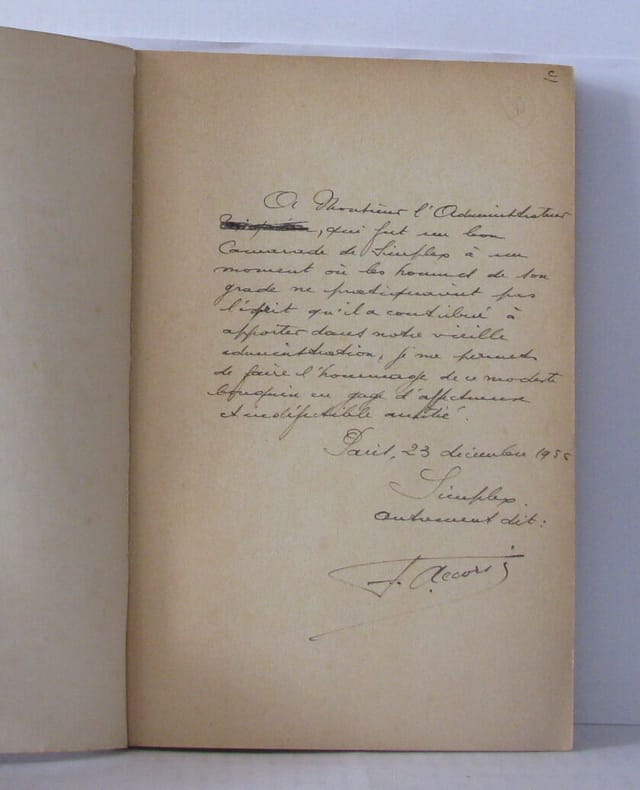 c
A Monsieur l'Administrateur
, qui fut un bon
Camarade de Simplex à un
moment où les hommes de son
grade ne pratiquaient pas
l'esprit qu'il a contribué à
apporter dans notre vieille
administration, je me permets
de faire l'hommage de ce modeste
bouquin en gage d'affectueuse
et indéfectible amitié.
Paris, 23 décembre 1955
Simplex
autrement dit:
F. Accors